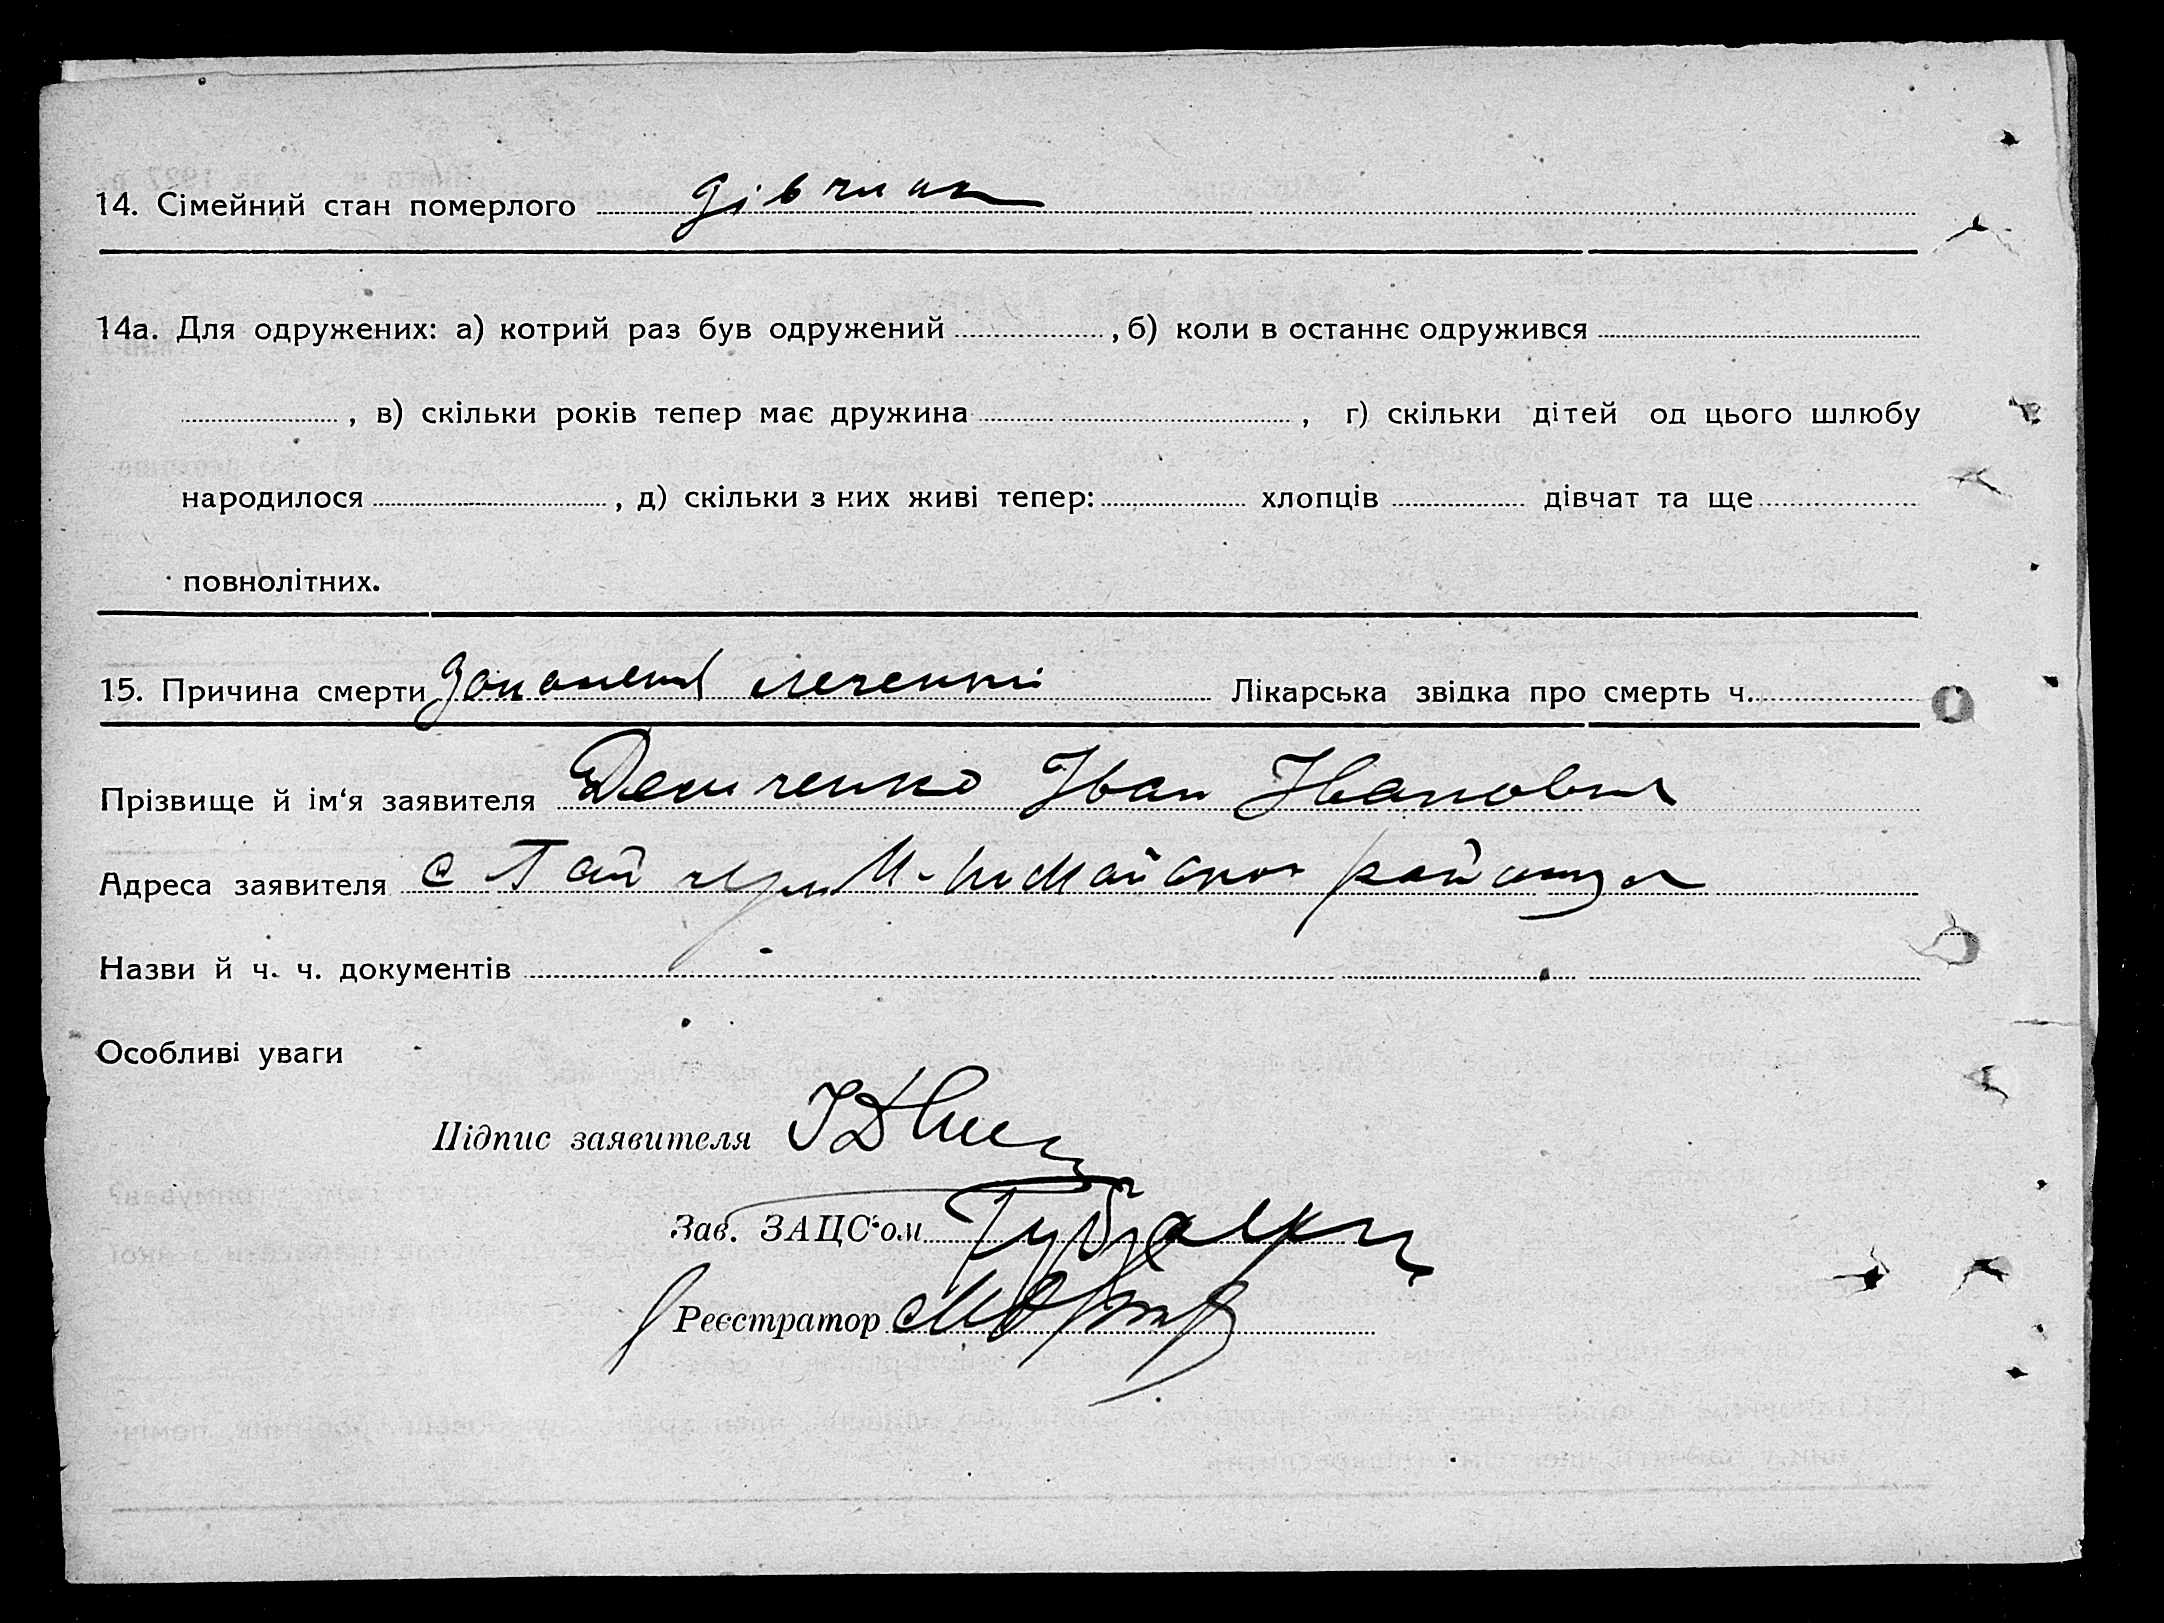 14. Сімейний стан померлого дівчина
14а. Для одружених: а) котрий раз був одружений , б) коли в останнє одружився
, в) скільки років тепер має дружина , г) скільки дітей од цього шлюбу
народилося , д) скільки з них живі тепер: хлопців дівчат та ще
повнолітних.
15. Причина смерти Запаленя Лікарська звідка про смерть ч.
Прізвище й ім'я заявителя Демченко Іван Іванович
Адреса заявителя с Гай району
Назви й ч. ч. документів
Особливі уваги
Підпис заявителя
Зав. ЗАЦС'ом
Реєстратор